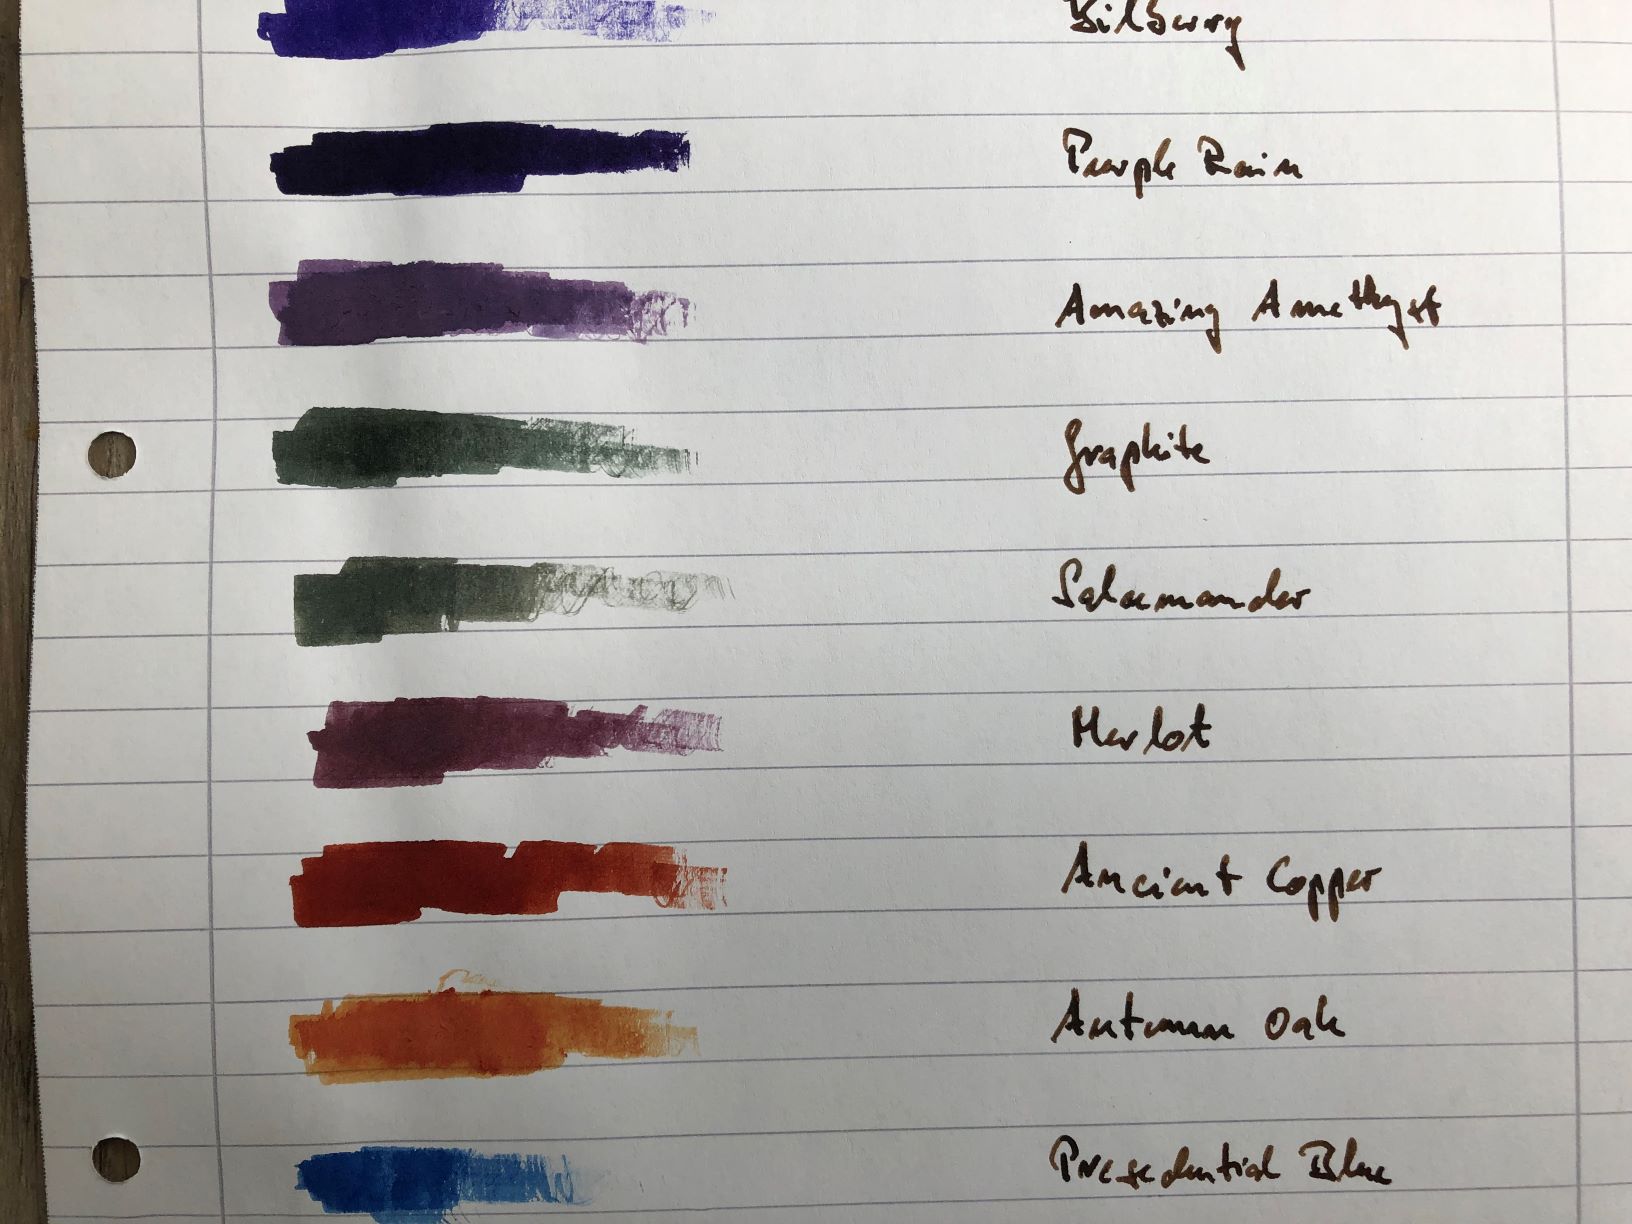 Bilberry
Purple Rain
Amazing Amethyst
Graphite
Salamander
Merlot
Ancient Copper
Autumn Oak
Presedential Blue